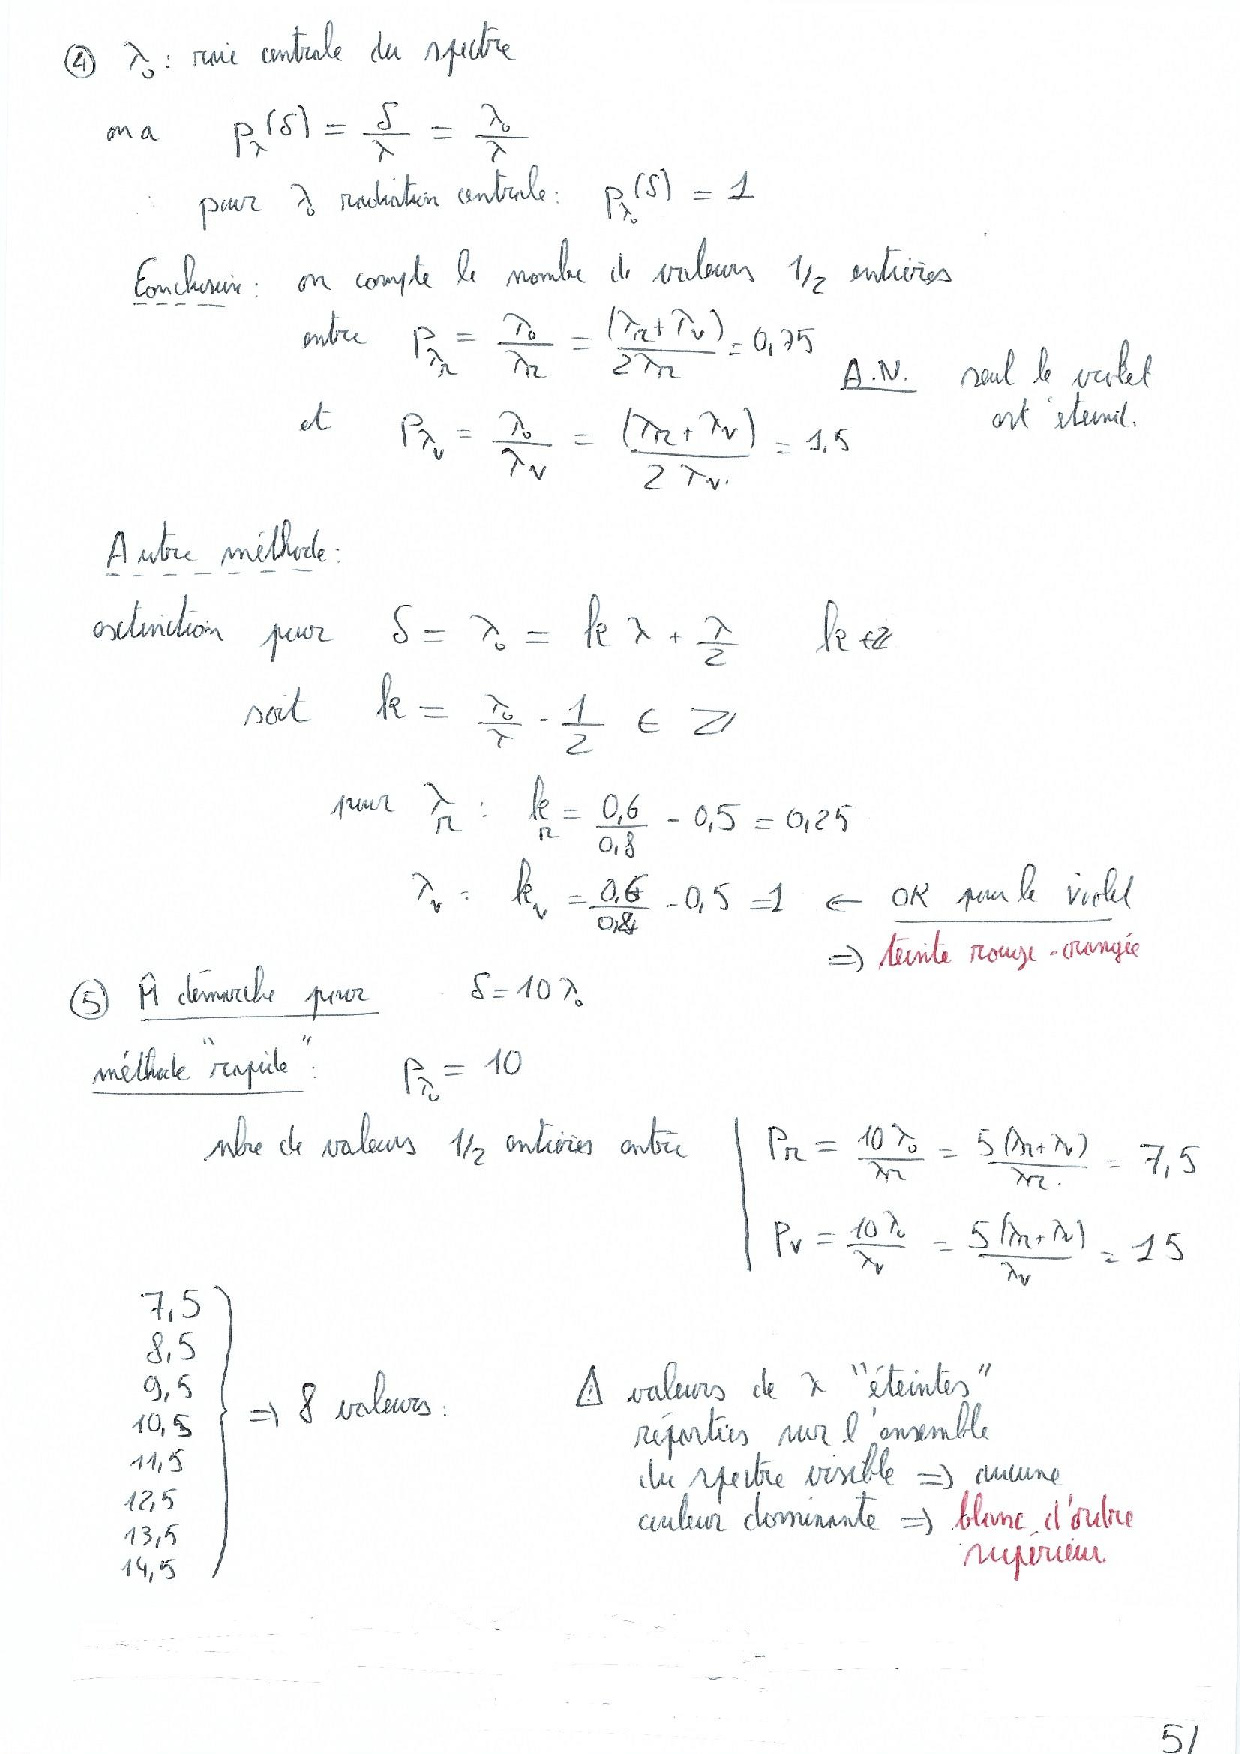 ④ λ₀ : raie centrale du spectre
on a p_λ(δ) = δ/λ = λ₀/λ
pour λ₀ radiation centrale : p_λ₀(δ) = 1
Conclusion : on compte le nombre de valeurs 1/2 entières
entre p_λr = λ₀/λr = (λr + λv)/2λr = 0,75
A.N. seul le violet
est éteint.
et p_λv = λ₀/λv = (λr + λv)/2λv = 1,5
Autre méthode :
extinction pour δ = λ₀ = kλ + λ/2 k ∈ Z
soit k = λ₀/λ - 1/2 ∈ Z
pour λr : kr = 0,6/0,8 - 0,5 = 0,25
λv : kv = 0,6/0,4 - 0,5 = 1 ← OK pour le violet
⇒ teinte rouge-orangée
⑤ M̂ démarche pour δ = 10 λ₀
méthode "rapide" : p_λ₀ = 10
nbre de valeurs 1/2 entières entre
pr = 10 λ₀/λr = 5(λr + λv)/λr = 7,5
pv = 10 λ₀/λv = 5(λr + λv)/λv = 15
7,5
8,5
9,5
10,5
11,5
12,5
13,5
14,5
⇒ 8 valeurs :
⚠ valeurs de λ "éteintes"
réparties sur l'ensemble
du spectre visible ⇒ aucune
couleur dominante ⇒ blanc d'ordre
supérieur.
5/